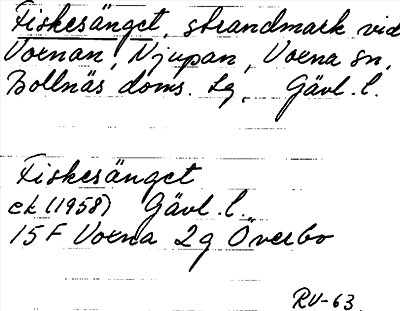 Fiskesänget, strandmark vid
Voxnan, Njupan, Voxna sn,
Bollnäs doms. Lg, Gävl. l.
Fiskesänget
ek (1958) Gävl. l.
15F Voxna 2g Överbo
RV-63.